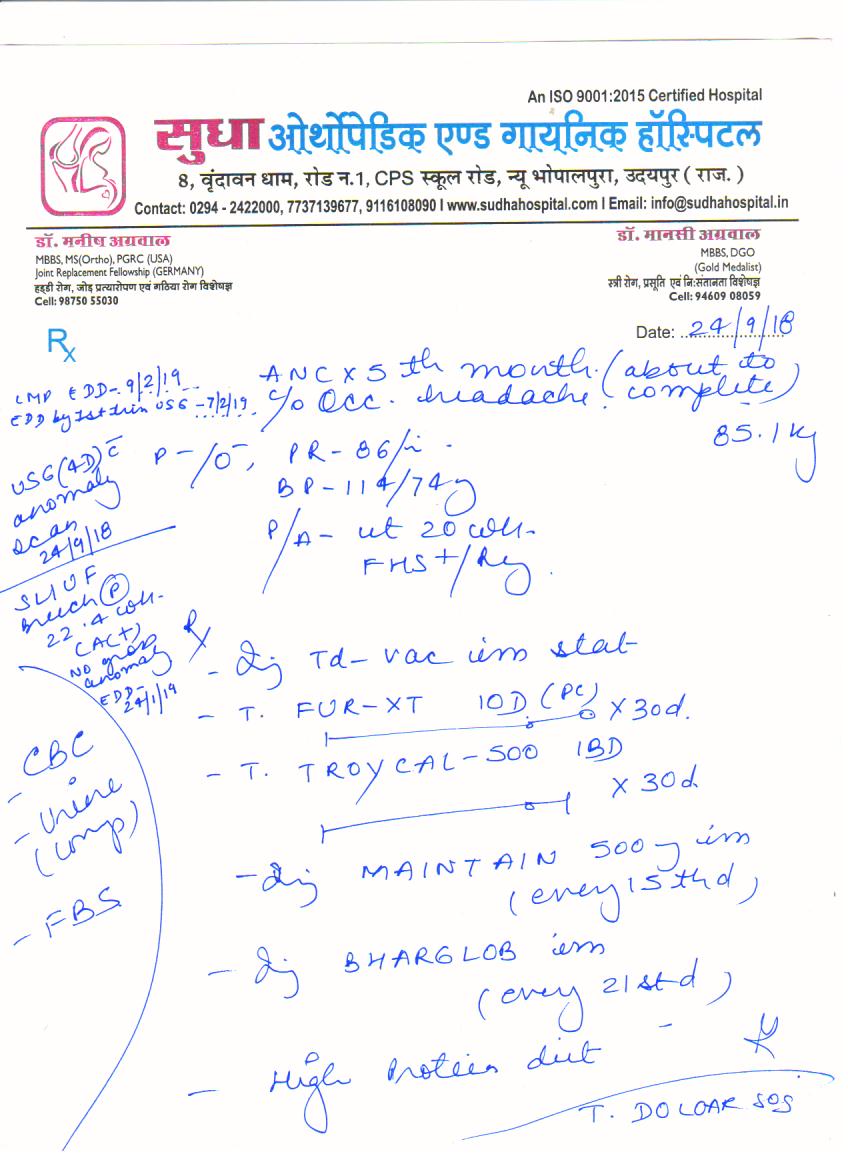 An ISO 9001:2015 Certified Hospital
सुधा ओर्थोपेडिक एण्ड गायनिक हॉस्पिटल
8, वृंदावन धाम, रोड न.1, CPS स्कूल रोड, न्यू भोपालपुरा, उदयपुर ( राज. )
Contact: 0294 - 2422000, 7737139677, 9116108090 I www.sudhahospital.com I Email: info@sudhahospital.in
डॉ. मनीष अग्रवाल
MBBS, MS(Ortho), PGRC (USA)
Joint Replacement Fellowship (GERMANY)
हड्डी रोग, जोड़ प्रत्यारोपण एवं गठिया रोग विशेषज्ञ
Cell: 98750 55030
डॉ. मानसी अग्रवाल
MBBS, DGO
(Gold Medalist)
स्त्री रोग, प्रसूति एवं निःसंतानता विशेषज्ञ
Cell: 94609 08059
Rx
Date: 24/9/18
ANC x 5th month. (about to complete)
c/o Occ. headache.
LMP EDD- 9/2/19
EDD by 1st trim USG - 7/2/19
85.1 kg
P -/O-, PR - 86/
BP - 114/74
P/A - ut 20
FHS +/Reg.
USG(4D) c̄
anomaly
scan
24/9/18
SLIUF
Breech (P)
22.4
(AC(+)
NO gross
anomaly
EDD-
24/1/19
CBC
- Urine
(comp)
- FBS
Rx
- Inj Td-vac im stat
- T. FUR-XT 1OD (PC) x 30d.
- T. TROYCAL-500 1BD
x 30d
- Inj MAINTAIN 500 im
(every 15th d)
- Inj BHARGLOB im
(every 21st d)
- High Protein diet
T. DOLOAR SOS